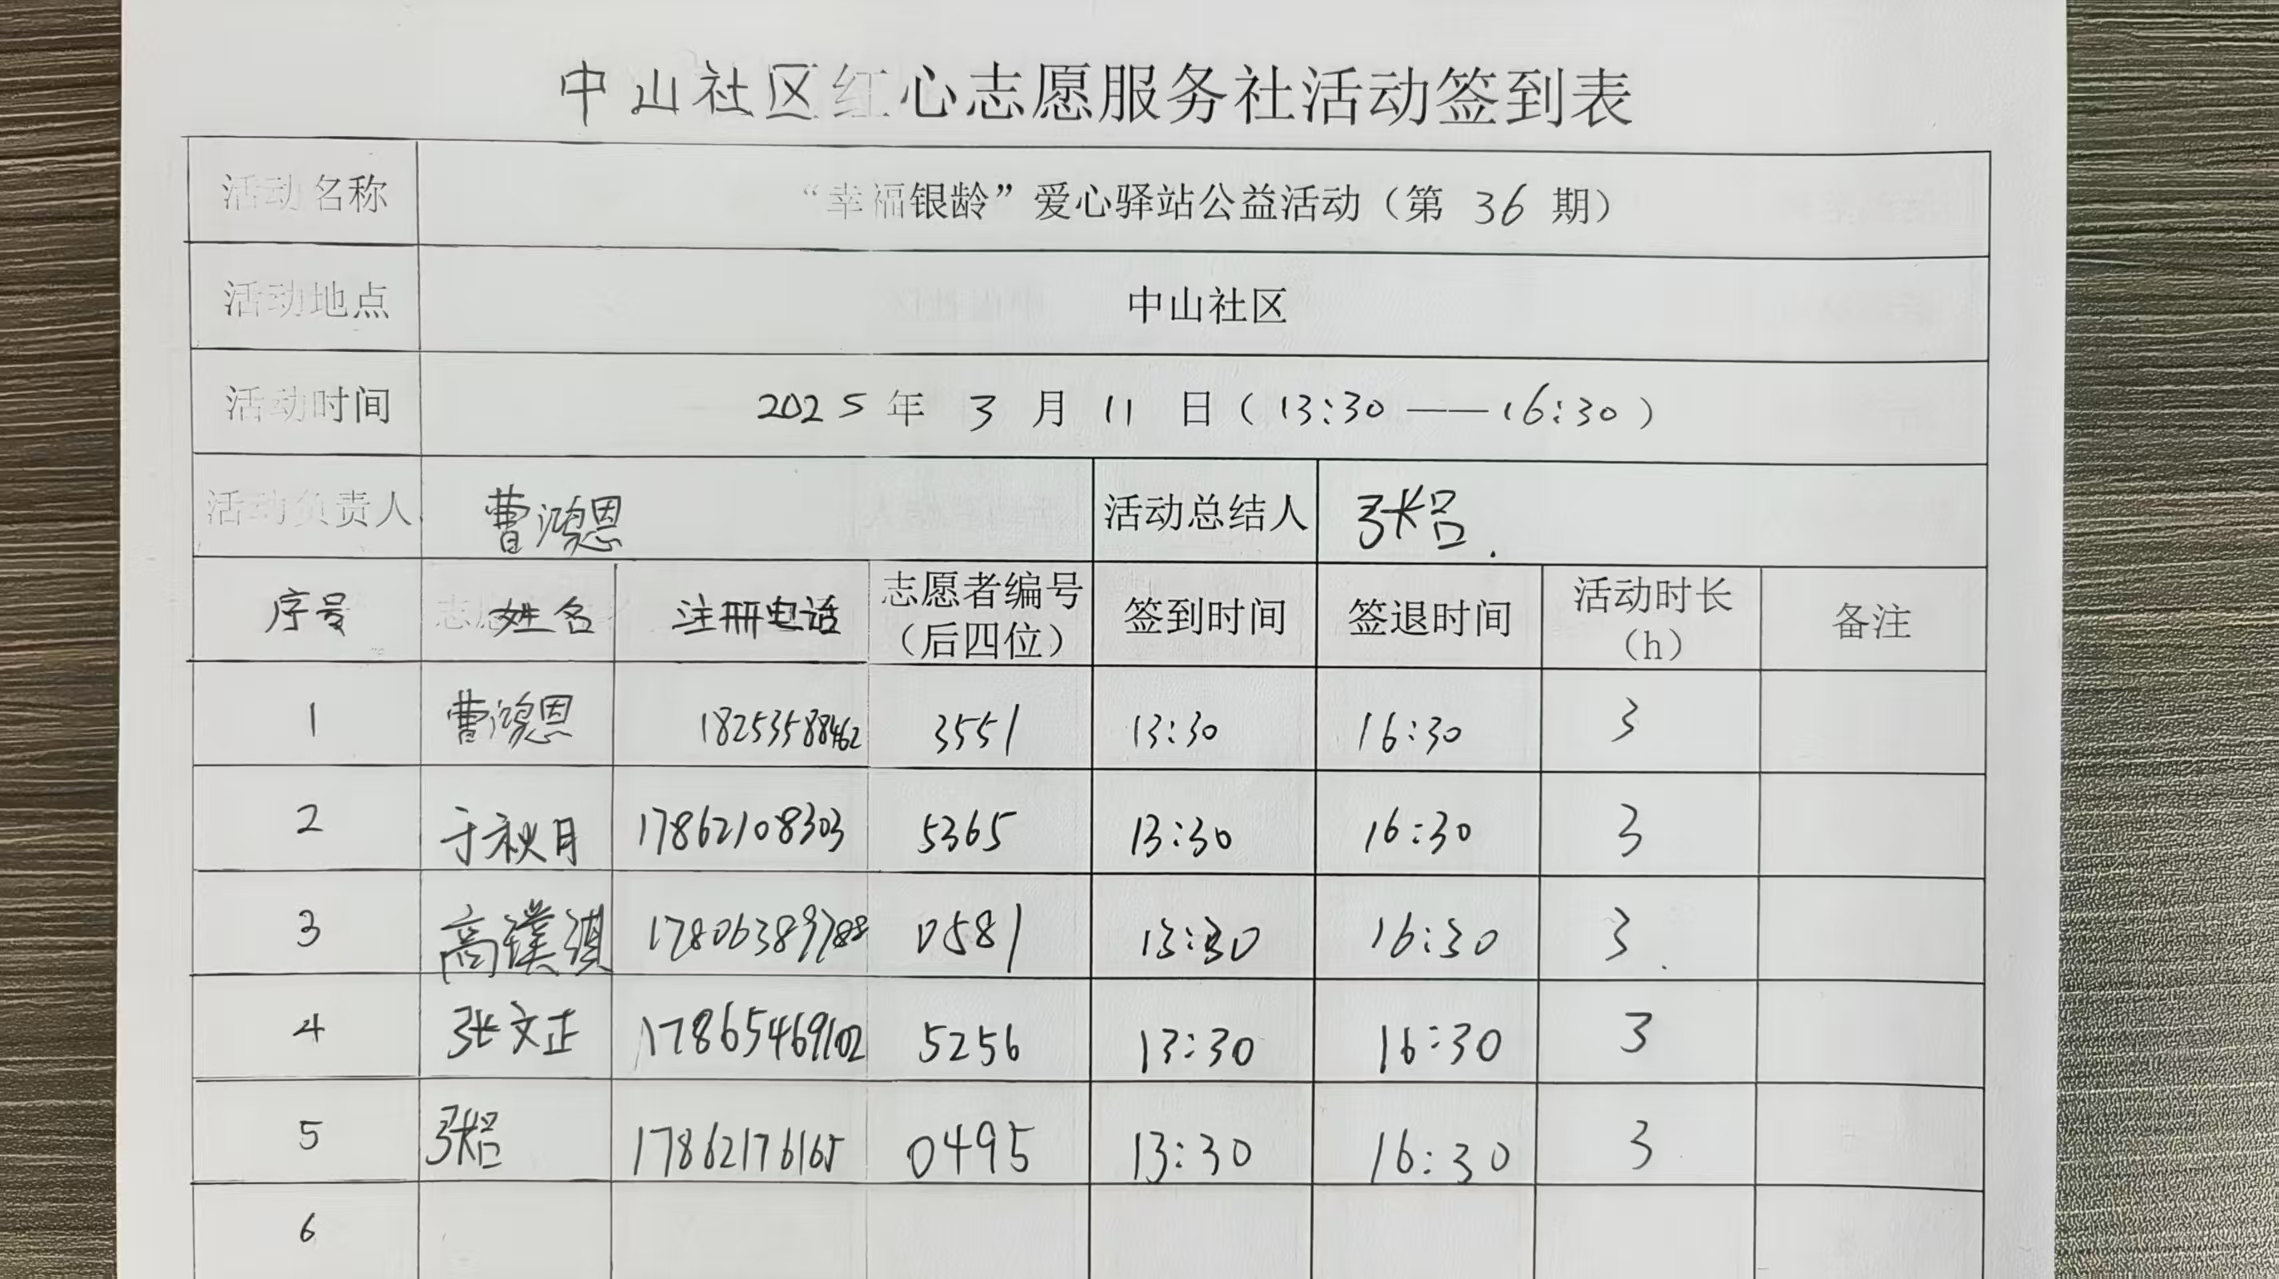 中山社区红心志愿服务社活动签到表
活动名称 “幸福银龄”爱心驿站公益活动（第 36 期）
活动地点 中山社区
活动时间 2025 年 3 月 11 日（13:30——16:30）
活动负责人 曹鸿恩 活动总结人 张吕
序号 姓名 注册电话 志愿者编号（后四位） 签到时间 签退时间 活动时长（h） 备注
1 曹鸿恩 18253588462 3551 13:30 16:30 3
2 于秋月 17862108303 5365 13:30 16:30 3
3 高镤淇 17806389788 0581 13:30 16:30 3
4 张文正 17865469102 5256 13:30 16:30 3
5 张吕 17862176165 0495 13:30 16:30 3
6